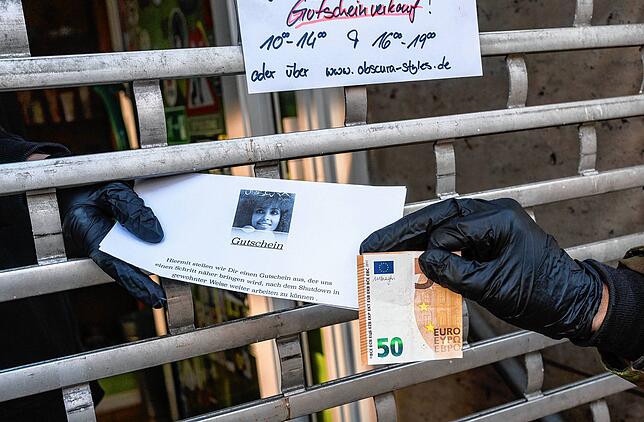 Gutscheinverkauf!
10⁰⁰-14⁰⁰ & 16⁰⁰-19⁰⁰
oder über www.obscura-styles.de
Gutschein
Hiermit stellen wir Dir einen Gutschein aus, der uns
einen Schritt näher bringen wird, nach dem Shutdown in
gewohnter Weise weiter arbeiten zu können .
50
EURO
ΕΥΡΩ
ЕВРО